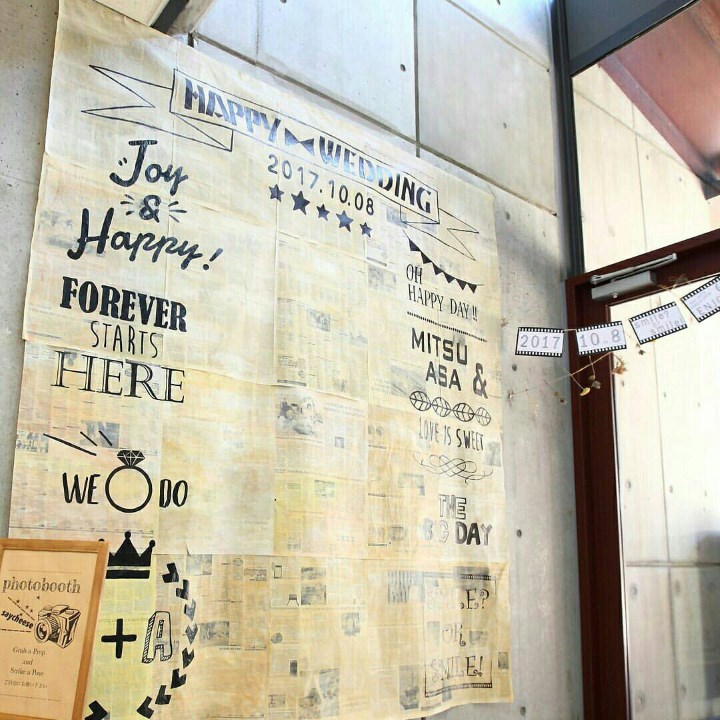 HAPPY WEDDING
2017.10.08
Joy
&
Happy!
FOREVER
STARTS
HERE
WE DO
+ A
OH
HAPPY DAY!!
MITSU
ASA &
LOVE IS SWEET
THE
DAY
OR
SMILE!
2017
10.8
photobooth
saycheese
Grab a Prop
and
Strike a Pose